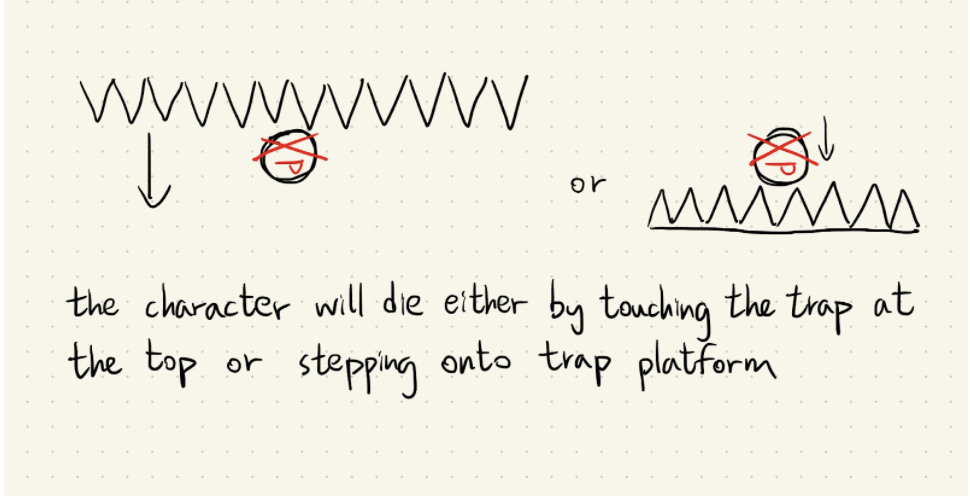 or
the character will die either by touching the trap at
the top or stepping onto trap platform